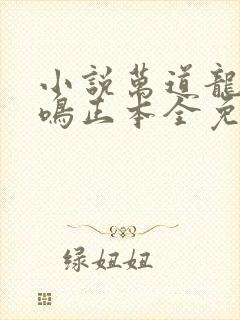 小說萬道龍
鳴正本全免
绿妞妞